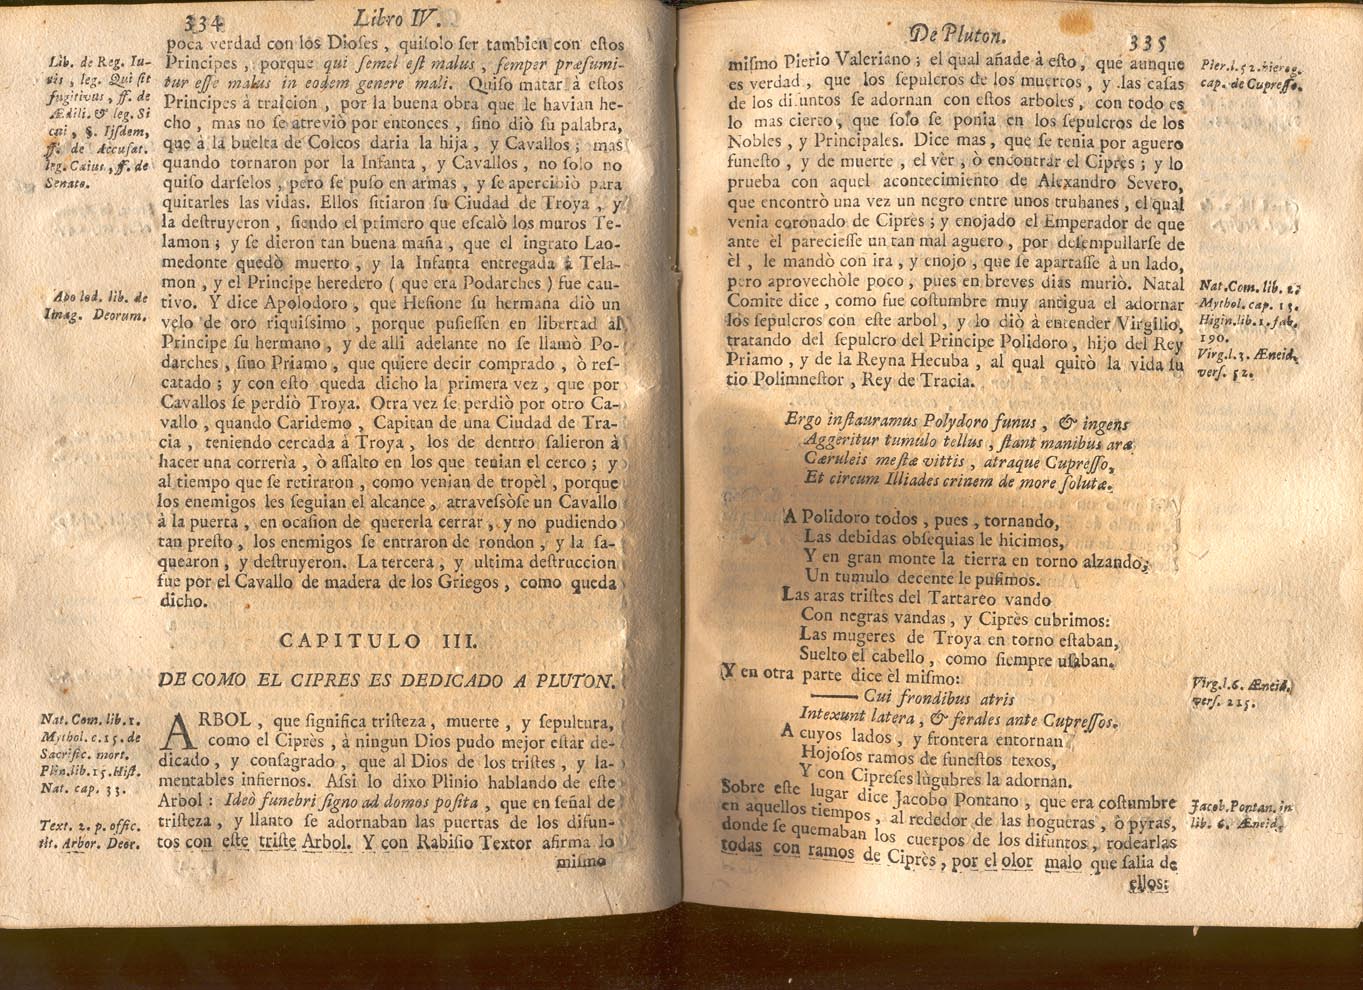 334 Libro IV.
poca verdad con los Dioses, quisolo ser tambien con estos
Principes, porque qui semel est malus, semper præsumi-
tur esse malus in eodem genere mali. Quiso matar à estos
Principes à traicion, por la buena obra que le havian he-
cho, mas no se atreviò por entonces, sino diò su palabra,
que à la buelta de Colcos daria la hija, y Cavallos; mas
quando tornaron por la Infanta, y Cavallos, no solo no
quiso darselos, pero se puso en armas, y se apercibiò para
quitarles las vidas. Ellos sitiaron su Ciudad de Troya, y
la destruyeron, siendo el primero que escalò los muros Te-
lamon; y se dieron tan buena maña, que el ingrato Lao-
medonte quedò muerto, y la Infanta entregada à Tela-
mon, y el Principe heredero (que era Podarches) fue cau-
tivo. Y dice Apolodoro, que Hesione su hermana diò un
velo de oro riquissimo, porque pusiessen en libertad àl
Principe su hermano, y de alli adelante no se llamò Po-
darches, sino Priamo, que quiere decir comprado, ò res-
catado; y con esto queda dicho la primera vez, que por
Cavallos se perdiò Troya. Otra vez se perdiò por otro Ca-
vallo, quando Caridemo, Capitan de una Ciudad de Tra-
cia, teniendo cercada à Troya, los de dentro salieron à
hacer una correrìa, ò assalto en los que tenian el cerco; y
al tiempo que se retiraron, como venian de tropèl, porque
los enemigos les seguian el alcance, atravessòse un Cavallo
à la puerta, en ocasion de quererla cerrar, y no pudiendo
tan presto, los enemigos se entraron de rondon, y la sa-
quearon, y destruyeron. La tercera, y ultima destruccion
fue por el Cavallo de madera de los Griegos, como queda
dicho.
CAPITULO III.
DE COMO EL CIPRES ES DEDICADO A PLUTON.
ARBOL, que significa tristeza, muerte, y sepultura,
como el Ciprès, à ningun Dios pudo mejor estàr de-
dicado, y consagrado, que al Dios de los tristes, y la-
mentables infiernos. Assi lo dixo Plinio hablando de este
Arbol: Ideò funebri signo ad domos posita, que en señal de
tristeza, y llanto se adornaban las puertas de los difun-
tos con este triste Arbol. Y con Rabisio Textor afirma lo
mismo
Lib. de Reg. Iu-
ris, leg. Qui sit
fugitivus, ff. de
Ædili. & leg. Si
cui, §. Iisdem,
ff. de Accusat.
leg. Caius, ff. de
Senato.
Apolod. lib. de
Imag. Deorum.
Nat. Com. lib. 1.
Mythol. c. 15. de
Sacrific. mort.
Plin. lib. 15. Hist.
Nat. cap. 33.
Text. 2. p. offic.
tit. Arbor. Deor.
De Pluton. 335
mismo Pierio Valeriano; el qual añade à esto, que aunque
es verdad, que los sepulcros de los muertos, y las casas
de los difuntos se adornan con estos arboles, con todo es
lo mas cierto, que solo se ponia en los sepulcros de los
Nobles, y Principales. Dice mas, que se tenia por aguero
funesto, y de muerte, el vèr, ò encontrar el Ciprès; y lo
prueba con aquel acontecimiento de Alexandro Severo,
que encontrò una vez un negro entre unos truhanes, el qual
venia coronado de Ciprès; y enojado el Emperador de que
ante èl pareciesse un tan mal aguero, por desempullarse de
èl, le mandò con ira, y enojo, que se apartasse à un lado,
pero aprovechòle poco, pues en breves dias muriò. Natal
Comite dice, como fue costumbre muy antigua el adornar
los sepulcros con este arbol, y lo diò à entender Virgilio,
tratando del sepulcro del Principe Polidoro, hijo del Rey
Priamo, y de la Reyna Hecuba, al qual quitò la vida su
tio Polimnestor, Rey de Tracia.
Ergo instauramus Polydoro funus, & ingens
Aggeritur tumulo tellus, stant manibus aræ
Cæruleis mestæ vittis, atraque Cupresso,
Et circum Illiades crinem de more solutæ.
A Polidoro todos, pues, tornando,
Las debidas obsequias le hicimos,
Y en gran monte la tierra en torno alzando,
Un tumulo decente le pusimos.
Las aras tristes del Tartareo vando
Con negras vandas, y Ciprès cubrimos:
Las mugeres de Troya en torno estaban,
Suelto el cabello, como siempre usaban.
Y en otra parte dice èl mismo:
—— Cui frondibus atris
Intexunt latera, & ferales ante Cupressos.
A cuyos lados, y frontera entornan
Hojosos ramos de funestos texos,
Y con Cipreses lùgubres la adornan.
Sobre este lugar dice Jacobo Pontano, que era costumbre
en aquellos tiempos, al rededor de las hogueras, ò pyras,
donde se quemaban los cuerpos de los difuntos, rodearlas
todas con ramos de Ciprès, por el olor malo que salia de
ellos:
Pier. l. 52. hierog.
cap. de Cupresso.
Nat. Com. lib. 1.
Mythol. cap. 15.
Higin. lib. 1. fab.
190.
Virg. l. 3. Æneid.
vers. 52.
Virg. l. 6. Æneid.
vers. 215.
Jacob. Pontan. in
lib. 6. Æneid.